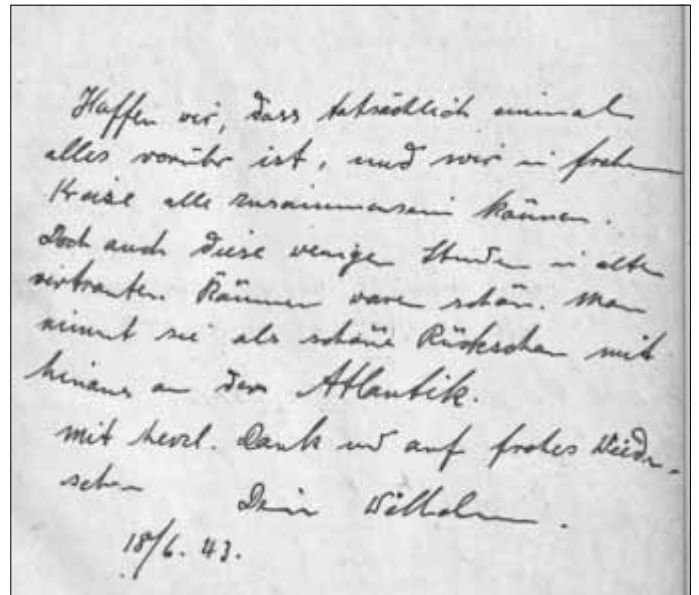 Hoffen wir, dass tatsächlich einmal
alles vorüber ist, und wir in frohem
Kreise alle zusammensein können.
Doch auch diese wenigen Stunden in alten
vertrauten Räumen waren schön. Man
nimmt sie als schöne Rückschau mit
hinaus an den Atlantik.
Mit herzl. Dank und auf frohes Wieder-
sehen Dein Wilhelm.
18/6. 43.